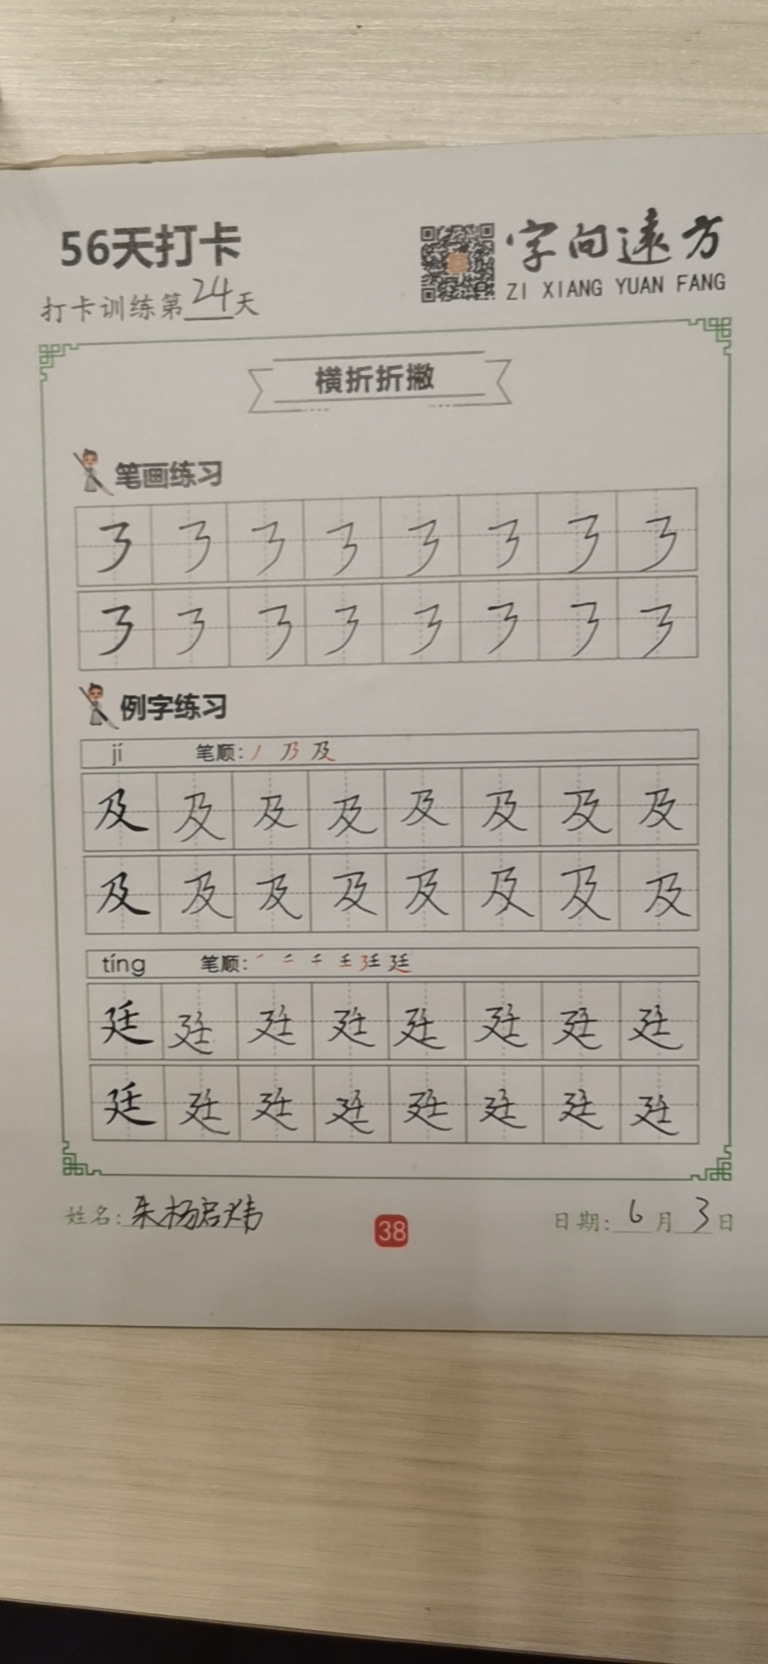 56天打卡
字向遠方
ZI XIANG YUAN FANG
打卡训练第24天
横折折撇
笔画练习
例字练习
jí 笔顺: 丿 乃 及
及 及 及 及 及 及 及 及
及 及 及 及 及 及 及 及
tíng 笔顺:
廷 廷 廷 廷 廷 廷 廷 廷
廷 廷 廷 廷 廷 廷 廷 廷
姓名: 朱杨启炜
38
日期: 6月3日